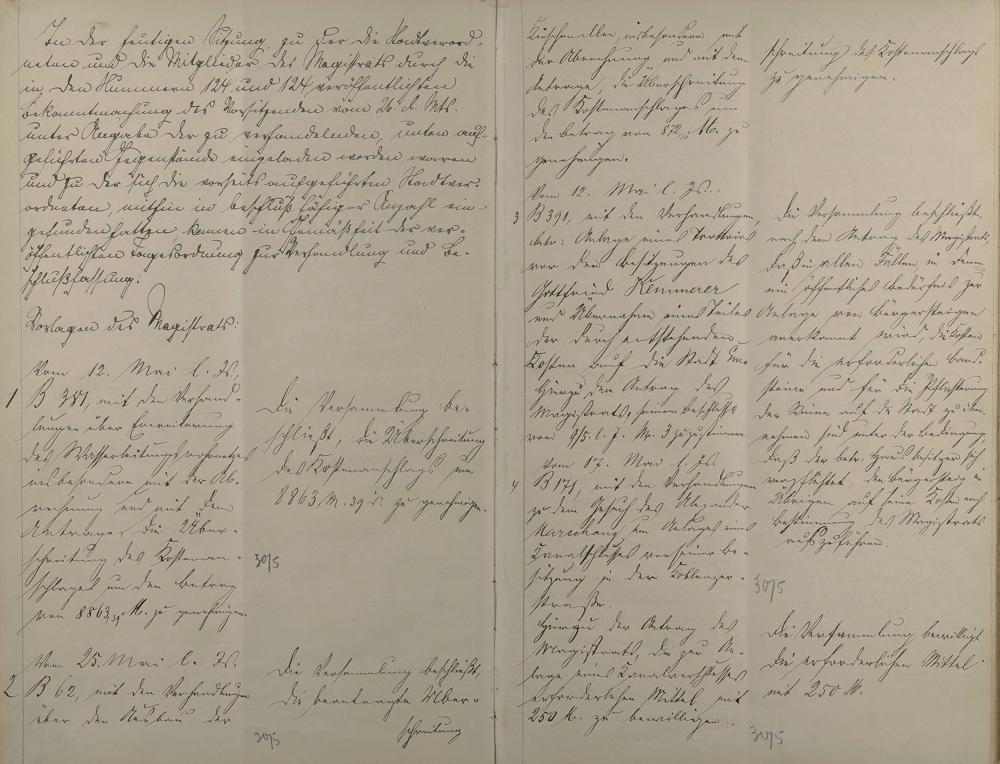 In der heutigen Sitzung, zu der die Stadtverord-
neten und die Mitglieder des Magistrats durch die
in den Nummern 124 und 124 veröffentlichten
Bekanntmachung des Vorsitzenden vom 26. d. Mts.
unter Angabe der zu verhandelnden, unten auf-
geführten Gegenstände eingeladen worden waren
und zu der sich die vorseits aufgeführten Stadtver-
ordneten, mithin in beschlußfähiger Anzahl ein-
gefunden hatten, kamen in Gemäßheit der ver-
öffentlichten Tagesordnung zur Verhandlung und Be-
schlußfassung:
Vorlagen des Magistrats:
Vom 12. Mai l. Js.,
1 B 381, mit den Verhand-
lungen über Erweiterung
des Wasserleitungsrohrnetzes
insbesondere mit der Ab-
rechnung und mit dem
Antrage, die Über-
schreitung des Kostenan-
schlages um den Betrag
von 8863,39 M. zu genehmigen.
Die Versammlung be-
schließt, die Überschreitung
des Kostenanschlags um
8863 M. 39 d. zu genehmigen.
30/5
Vom 25. Mai l. Js.
2 B 62, mit den Verhandlungen
über den Ausbau der
Die Versammlung beschließt,
die beantragte Über-
schreitung
30/5
insbesondere mit
der Abrechnung und mit dem
Antrage, die Überschreitung
des Kostenanschlages um
den Betrag von 872,10 M. zu
genehmigen.
schreitung des Kostenanschlags
zu genehmigen.
Vom 12. Mai l. Js.:
3 B 391, mit den Verhandlungen,
betr: Anlage eines Trottoirs
vor den Besitzungen des
Gottfried Kemmerer
und Übernahme eines Teiles
der durch entstehenden
Kosten auf die Stadt
Hierzu der Antrag des
Magistrats, seinem Beschlusse
vom 9/5. l. J. Nr. 3 zuzustimmen.
Die Versammlung beschließt,
nach dem Antrag des Magistrats,
daß in allen Fällen, in denen
ein öffentliches Bedürfnis zur
Anlage von Bürgersteigen
anerkannt wird, die Kosten
für die erforderlichen Bord-
steine und für die Pflasterung
der Rinne auf die Stadt zu über-
nehmen sind unter der Bedingung,
daß der betr. Hausbesitzer sich
verpflichtet, den Bürgersteig im
Übrigen auf seine Kosten nach
Bestimmung des Magistrats
auszuführen.
30/5
Vom 17. Mai l. Js.
4 B 171, mit den Verhandlungen
zu dem Gesuch des Alexander
Marschang um Anlage eines
Kanalschlusses vor seiner Be-
sitzung in der Koblenzer-
straße.
Hierzu der Antrag des
Magistrats, die zur An-
lage eines Kanalanschlusses
erforderlichen Mittel mit
250 M. zu bewilligen.
Die Versammlung bewilligt
die erforderlichen Mittel
mit 250 M.
30/5